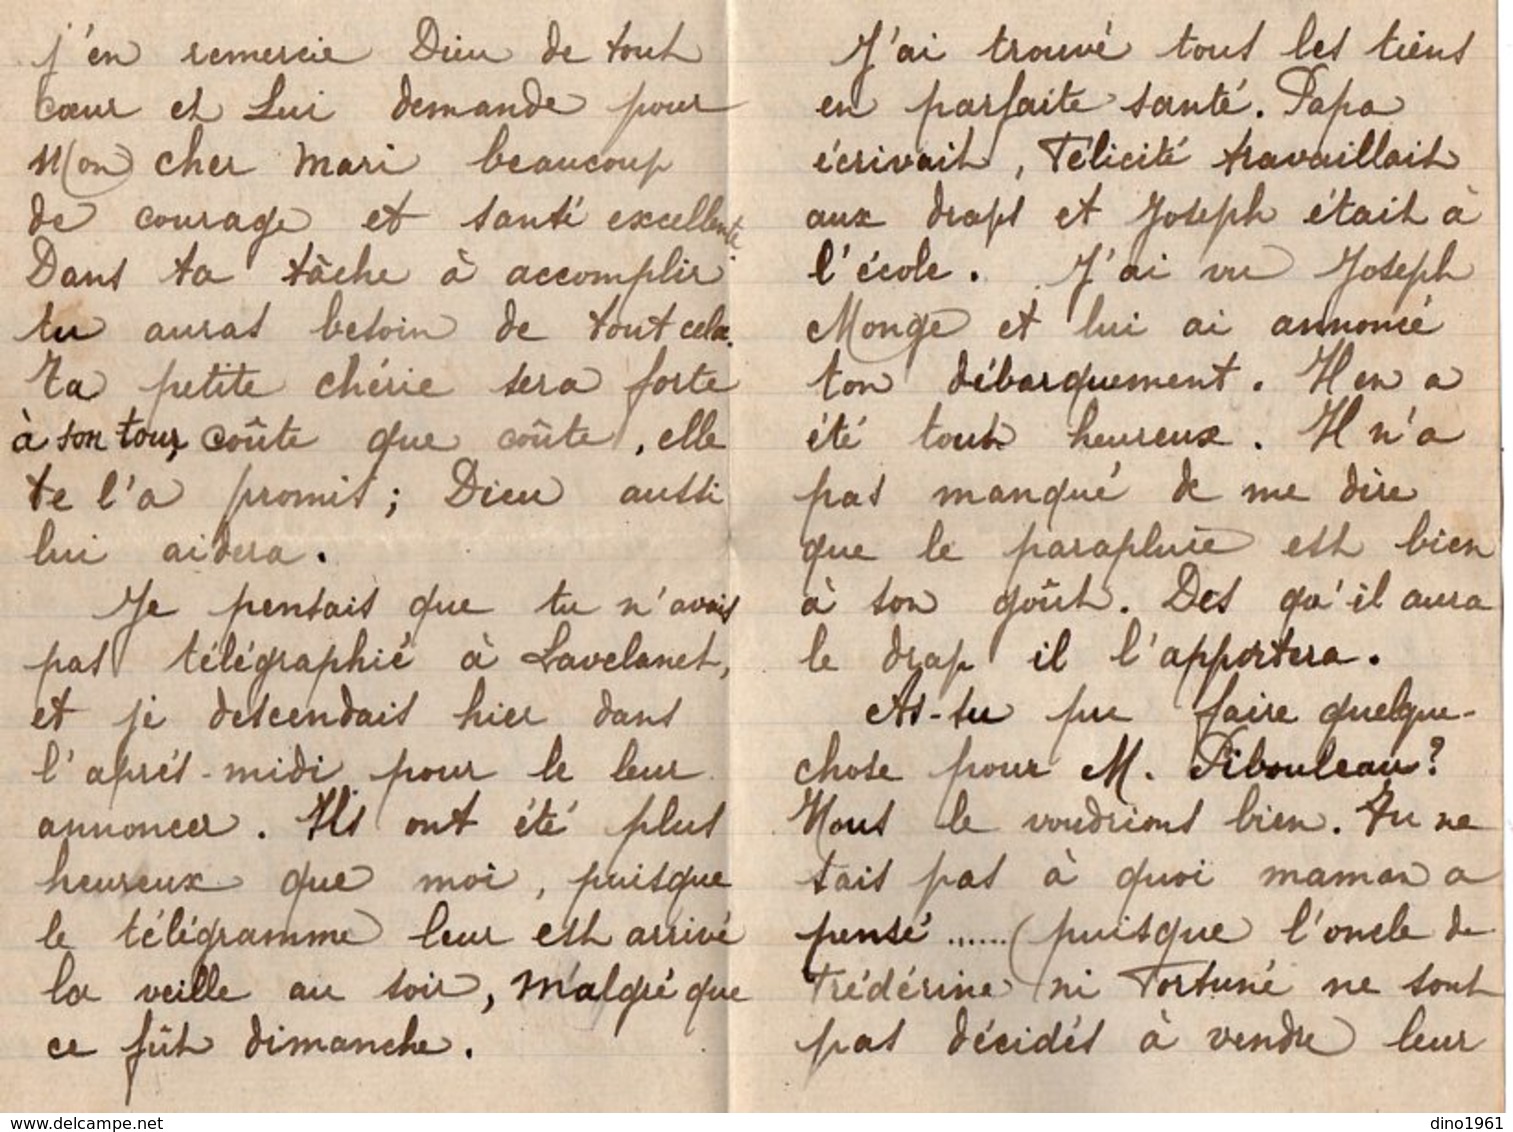 j'en remercie Dieu de tout
cœur et Lui demande pour
M(on) cher Mari beaucoup
de courage et santé excellente.
Dans ta tâche à accomplir
tu auras besoin de tout cela.
Ta petite chérie sera forte
à son tour, coûte que coûte, elle
te l'a promis; Dieu aussi
lui aidera.
Je pensais que tu n'avais
pas télégraphié à Lavelanet,
et je descendais hier dans
l'après-midi pour le leur
annoncer. Ils ont été plus
heureux que moi, puisque
le télégramme leur est arrivé
la veille au soir, malgré que
ce fût dimanche.
J'ai trouvé tous les tiens
en parfaite santé. Papa
écrivait, Félicité travaillait
aux draps et Joseph était à
l'école. J'ai vu Joseph
Monge et lui ai annoncé
ton débarquement. Il en a
été tout heureux. Il n'a
pas manqué de me dire
que le parapluie est bien
à son goût. Des qu'il aura
le drap il l'apportera.
As-tu pu faire quelque-
chose pour M. Pibouleau?
Nous le voudrions bien. Tu ne
sais pas à quoi maman a
pensé ...... (puisque l'oncle de
Frédérine ni Fortuné ne sont
pas décidés à vendre leur
dino1961